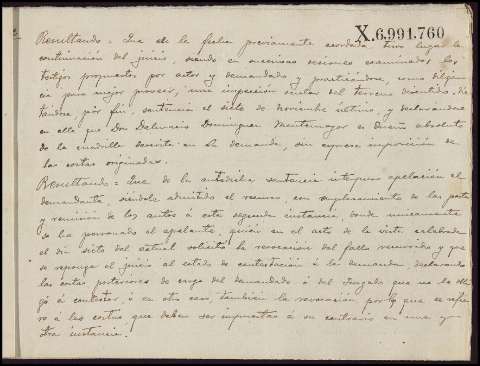 X.6.991.760
Resultando = Que en la fecha previamente acordada tuvo lugar la
continuación del juicio, siendo en sucesivas sesiones examinados los
testigos propuestos por actor y demandado y practicándose, como diligen
cia para mejor proveer, una inspección ocular del terreno discutido, dic
tándose, por fin, sentencia el siete de noviembre último, y declarándose
en ella que Don Dominguez Montemayor es dueño absoluto
de la cuadrilla descrita en la demanda, sin expresa imposición de
las costas originadas.
Resultando = Que de la antedicha sentencia interpuso apelación el
demandante, siéndole admitido el recurso, con emplazamiento de las partes
y remisión de los autos á esta segunda instancia, donde unicamente
se ha personado el apelante, quien en el acto de la vista celebrada
el dia siete del actual solicitó la revocación del fallo recurrido y que
se reponga el juicio al estado de contestación á la demanda, declarando
las costas posteriores de cargo del demandado ó del Juzgado que no le obli
gó á contestar, ó en otro caso, tambien la revocación por lo que se refie
re á las costas que deben ser impuestas á su contrario en una y
otra instancia.